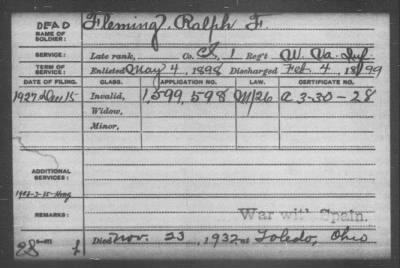 DEAD
NAME OF SOLDIER:
Fleming, Ralph F.
SERVICE:
Late rank, Co. 1 Reg't W. Va. Inf.
TERM OF SERVICE:
Enlisted May 4, 1898 Discharged Feb. 4, 1899
DATE OF FILING. CLASS. APPLICATION NO. LAW. CERTIFICATE NO.
1927 15 Invalid, 1,599,598 M/26 3-30-28
Widow,
Minor,
ADDITIONAL SERVICES:
REMARKS:
War with Spain.
Died Nov. 23, 1932 at Toledo, Ohio